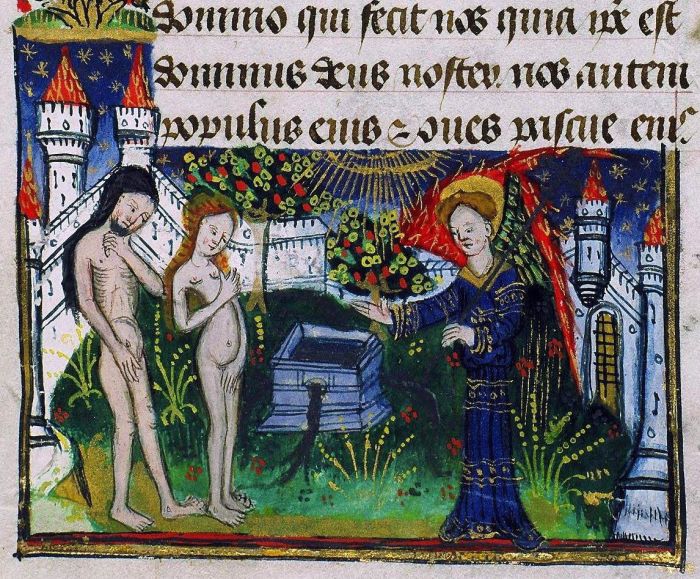 domino qui fecit nos quia ip̄e est
dominus deus noster. nos autem
populus eius ⁊ oues pascue eiꝰ